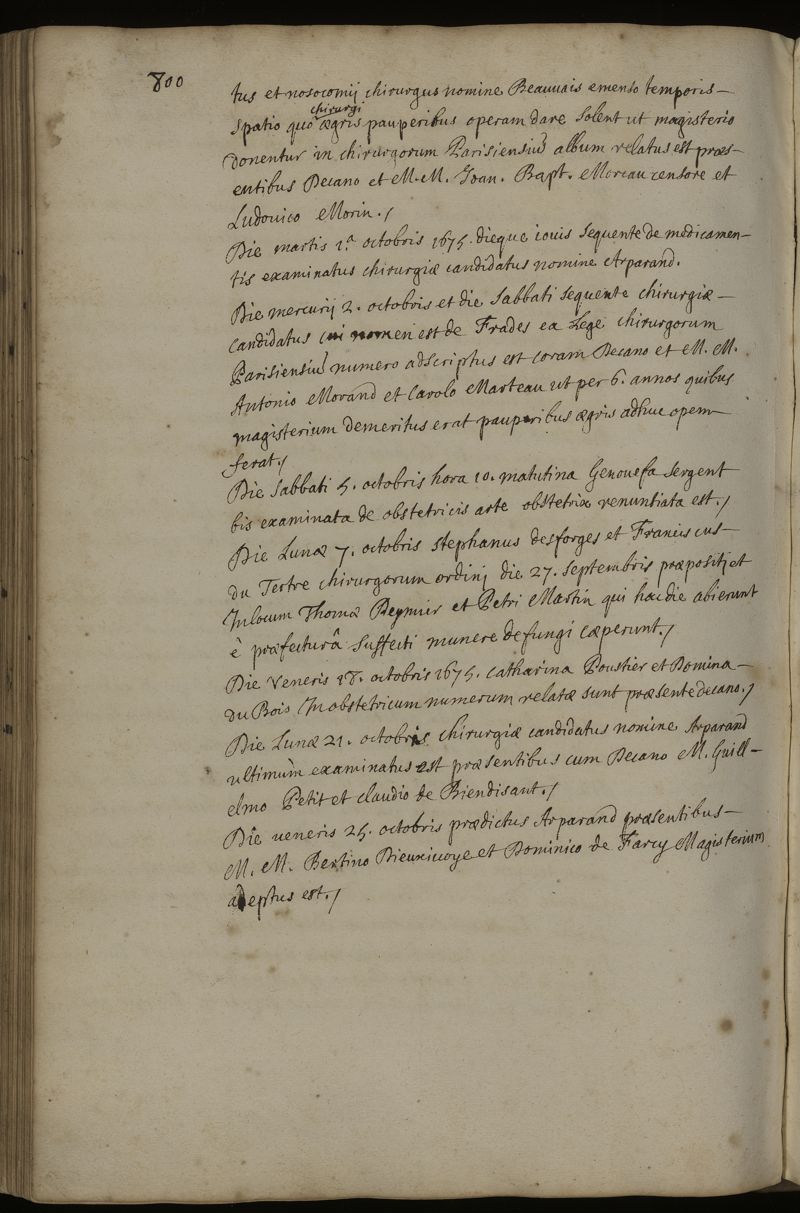 800
tus et nosocomij chirurgus nomine Beauuais emenso temporis
chirurgi
spatio quo ægris pauperibus operam dare solent ut magisterio
donentur in chirurgorum Parisiensiū album relatus est præs-
entibus Decano et M.M. Joan. Bapt. Moreau censore et
Ludouico Morin./
Die martis 1.ª octobris 1675. dieque iouis sequente de medicamen-
tis examinatus chirurgiæ candidatus nomine Arparand.
Die mercurij 2. octobris et die Sabbati sequente chirurgiæ
candidatus cui nomen est de Frades ex Lege chirurgorum
Parisiensiū numero adscriptus est coram Decano et M. M.
Antonio Morand et Carolo Marteau ut per 6. annos quibus
magisterium demeritus erat pauperibus ægris adhuc opem
ferat./
Die Sabbati 5. octobris hora 10. matutina Genouefa Sergent
bis examinata de obstetricis arte obstetrix renuntiata est./
Die Lunæ 7. octobris stephanus desforges et Franciscus
du Tertre chirurgorum ordinj die 27. septembris præpositj et
In locum Thomæ Regnier et Petri Martin qui hac die abierunt
è præfecturâ suffecti munere defungi cæperunt./
Die Veneris 18. octobris 1675. catharina Poustier et Domina
du Bois In obstetricum numerum relatæ sunt præsente decano./
Die Lunæ 21. octobris chirurgiæ candidatus nomine Arparand
ultimùm examinatus est præsentibus cum Decano M. Guill-
elmo Petit et claudio de Biendisant./
Die ueneris 25. octobris prædictus Arparand præsentibus
M. M. Bertino Dieuxiuoye et Dominico de Farcy Magisterium
adeptus est./